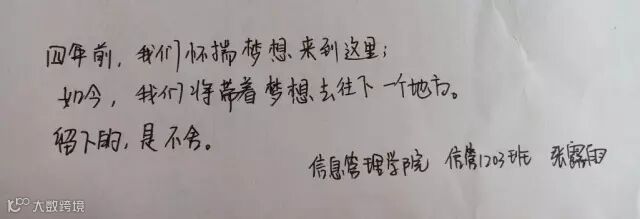 四年前，我们怀揣梦想来到这里；
如今，我们将带着梦想去往下一个地方。
留下的，是不舍。
信息管理学院 信管1203班 张露雨
大数跨境